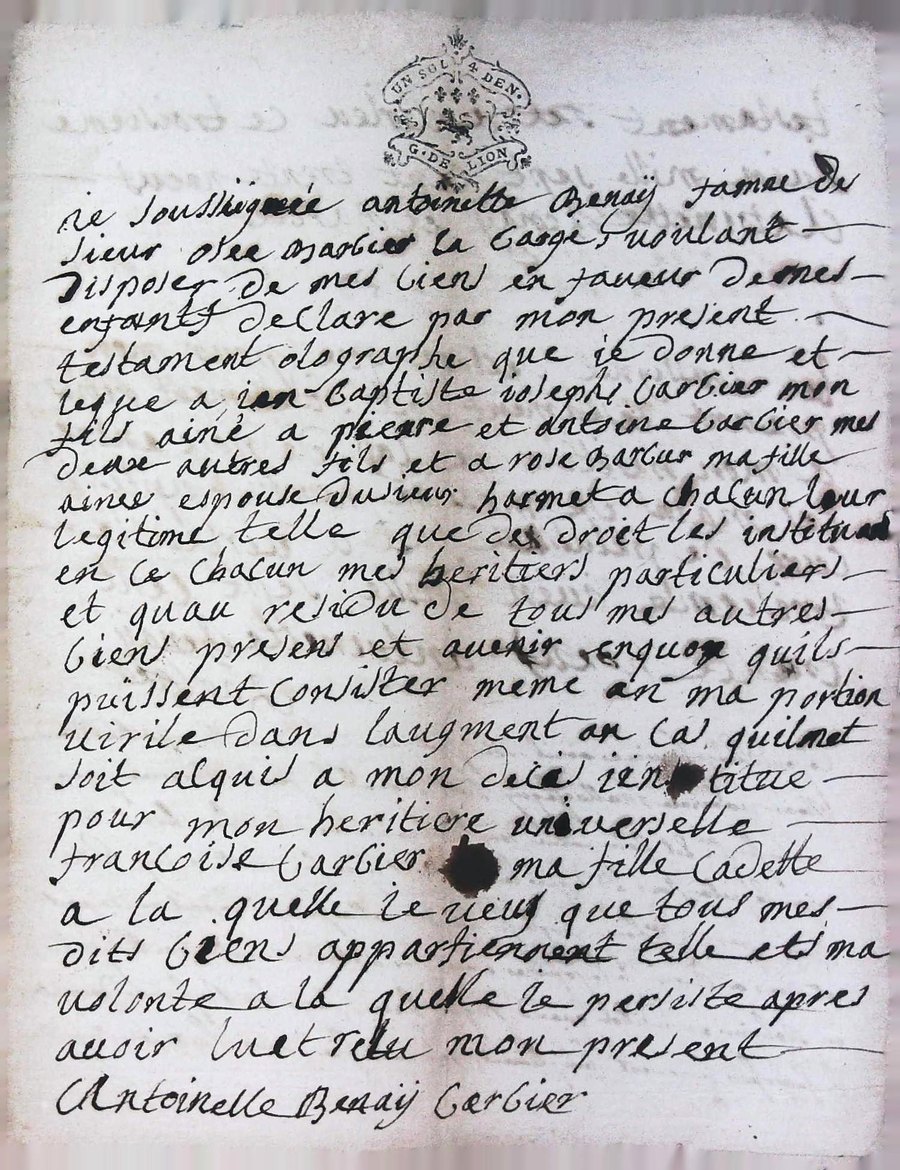 UN SOL 4 DEN.
G. DE LION
ie soussignée antoinette Benaÿ famme de
sieur osee Barbier la barge, voulant
Disposer de mes biens en faveur de mes
enfants declare par mon present
testament olographe que ie donne et
legue a ian baptiste ioseph barbier mon
fils ainé a pierre et antoine barbier mes
deux autres fils et a rose Barbier ma fille
ainee espouse du sieur harmet a chacun leur
legitime telle que de droit les instituant
en ce chacun mes heritiers particuliers
et quau residu de tous mes autres
biens presens et avenir enquoy quils
puissent Consister meme an ma portion
virile dans laugment an cas quil met
soit acquis a mon deces iens titue
pour mon heritiere universelle
francoise barbier ma fille Cadette
a la quelle ie veus que tous mes
dits biens appartiennent telle ets ma
volonte a la quelle ie persiste apres
avoir lu et relu mon present
Antoinelle Benaÿ barbier